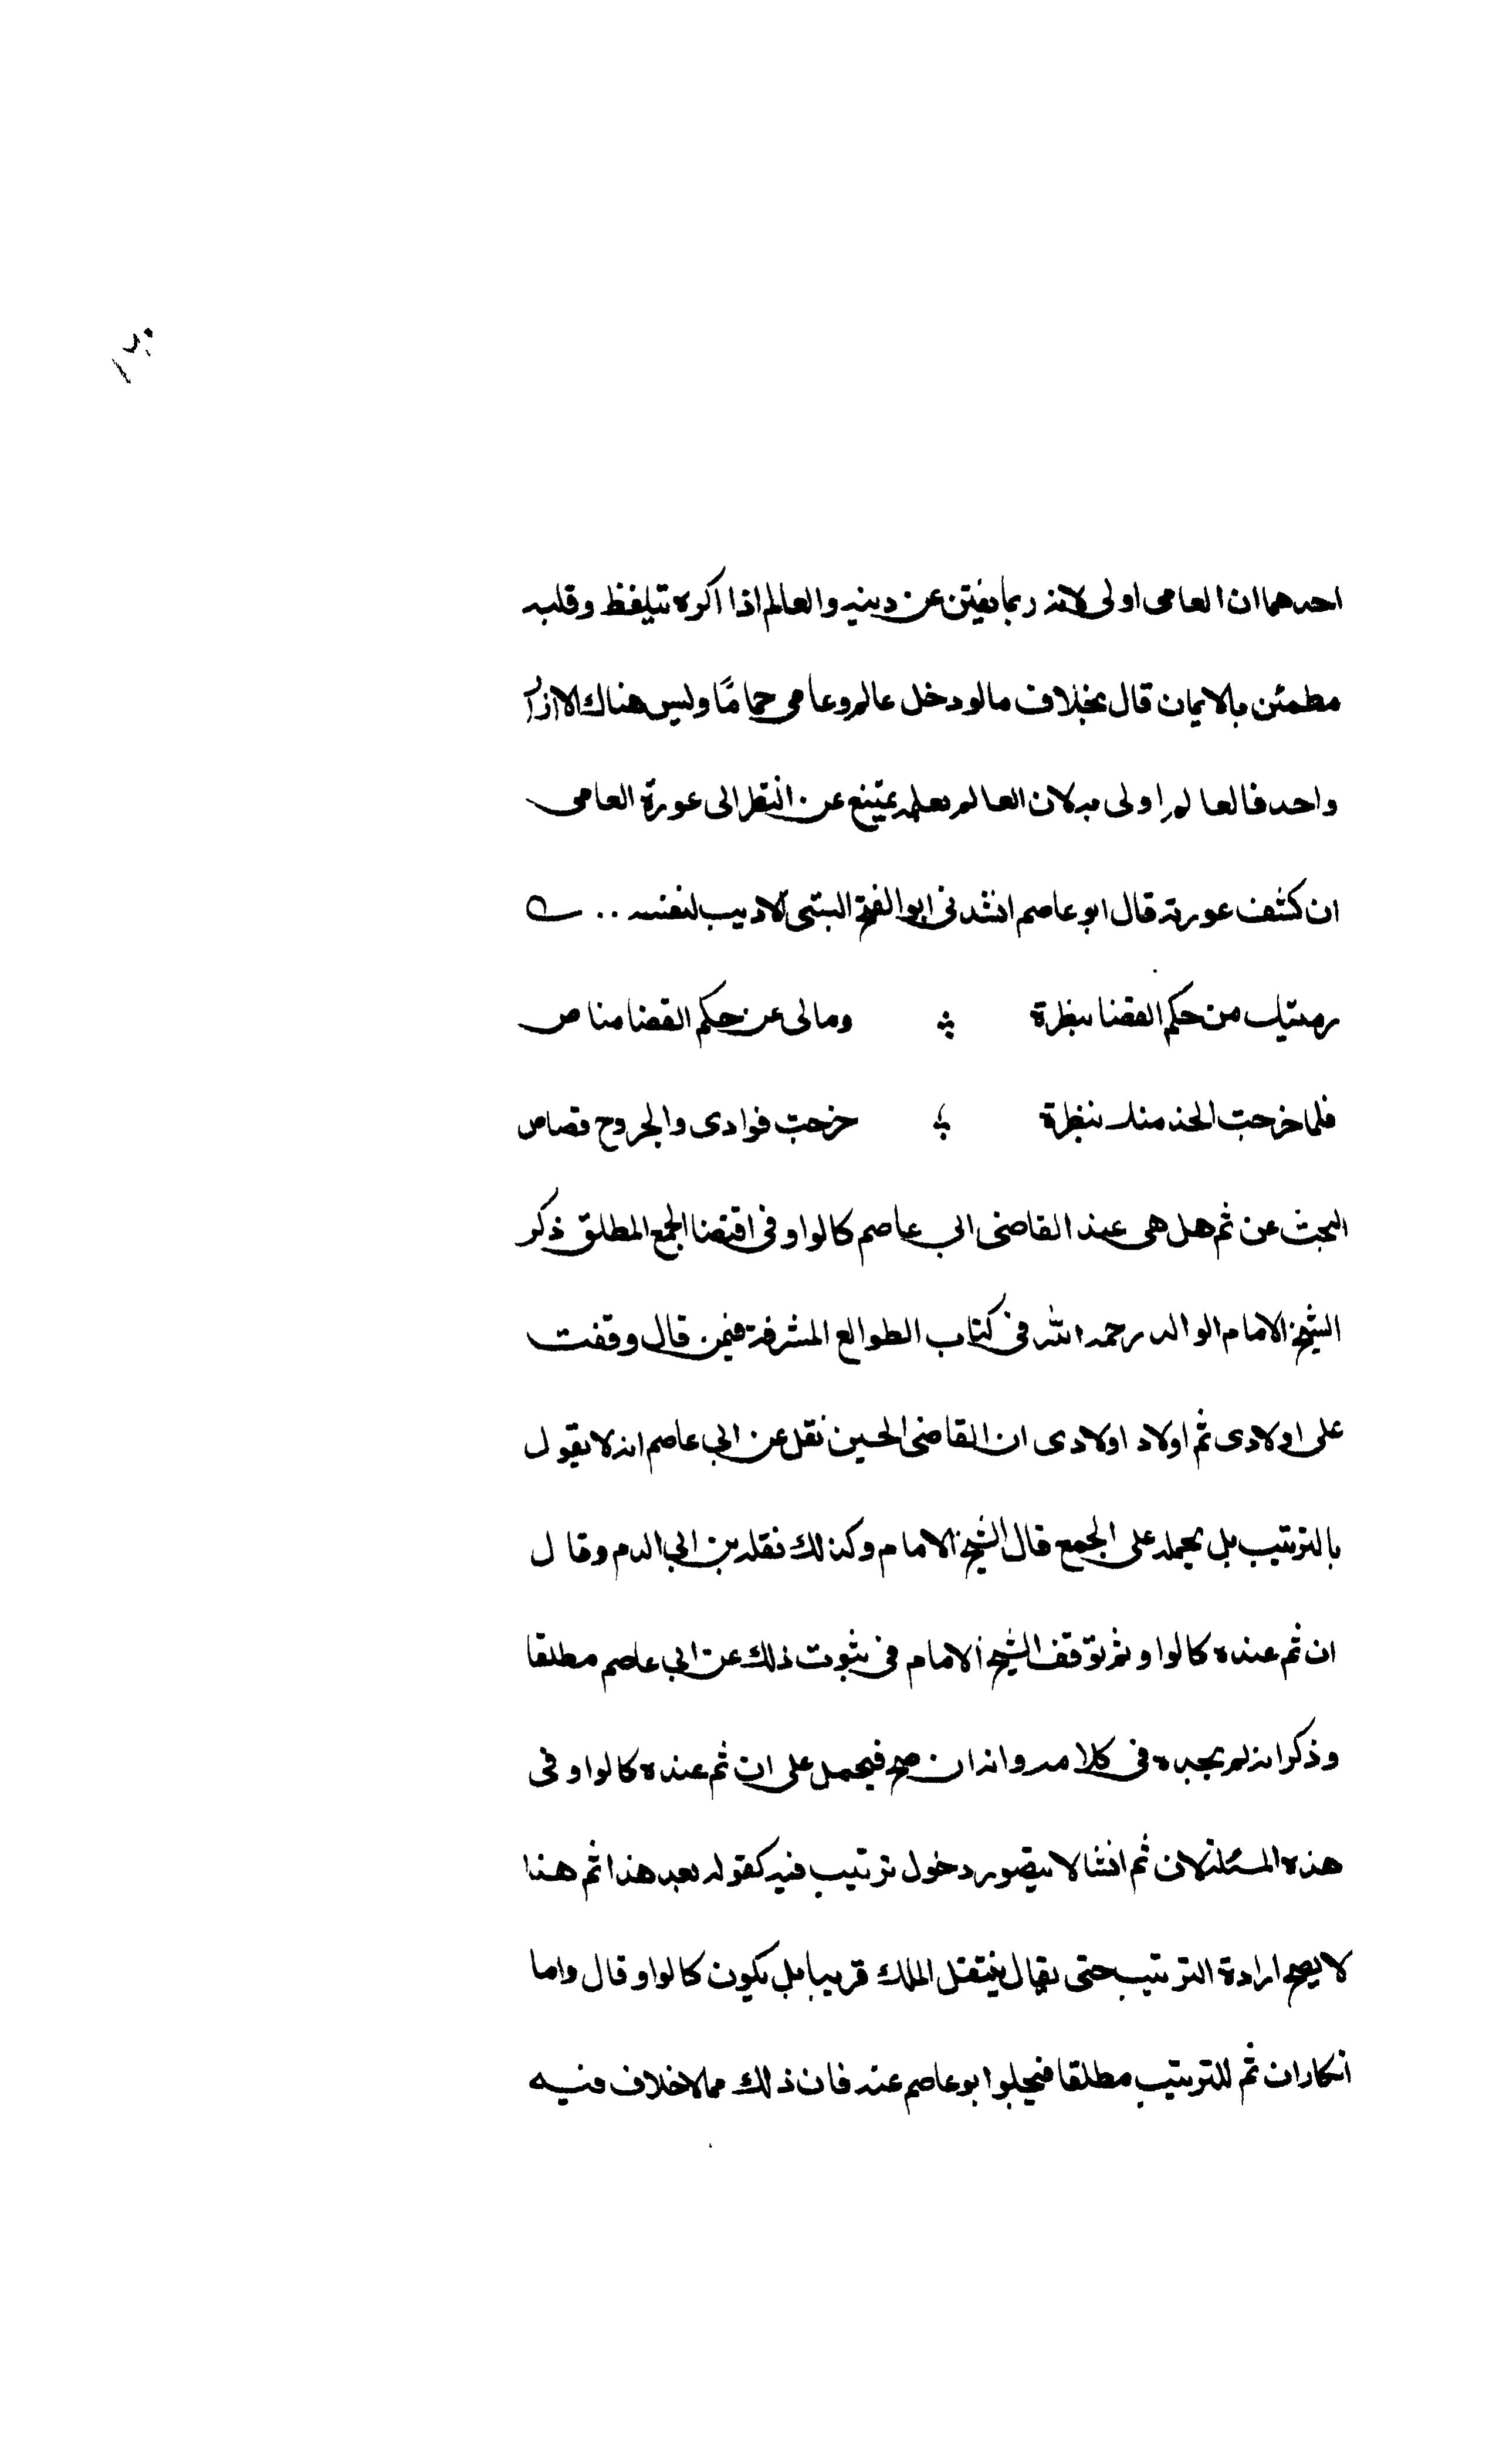 ١٢٠
احدهما ان العامى اولى لانه ربما يفتتن عن دينه والعالم اذا اكره تيلفظ وقلبه
مطمئن بالايمان قال بخلاف مالو دخل عالم وعامى حمامًا وليس هناك الا ازار
واحد فالعالم اولى به لان العالم بعلمه يمتنع عن النظر الى عورة العامى
ان كشف عورته قال ابو عاصم انشدنى ابو الفتح البستى الاديب لنفسه
رميتك من حكم القضا بنظرة ومالى عن حكم القضا مناص
فلما خرحت الخد منك بنظرة خرحت فوادى والجروح قصاص
البحث عن ثم هل هى عند القاضى ابى عاصم كالواو فى اقتضا الجمع المطلق ذكر
الشيخ الامام الوالد رحمه الله فى كتاب الطوالع المشرقة فيمن قال وقفت
على اولادى ثم اولاد اولادى ان القاضى الحسين نقل عن ابى عاصم انه لا يقول
بالترتيب بل يحمله على الجمع قال الشيخ الامام وكذلك نقله بن ابى الدم وقال
ان ثم عنده كالواو ثم توقف الشيخ الامام فى ثبوت ذلك عن ابى عاصم مطلقا
وذكر انه لم يجده فى كلامه وانه ان صح فيحمل على ان ثم عنده كالواو فى
هذه المسئلة لان ثم انشا لا يتصور دخول ترتيب فيه كقوله بعد هذا ثم هنا
لا يصح ارادة الترتيب حتى يقال ينتقل الملك قريبا بل يكون كالواو قال واما
انكار ان ثم للترتيب مطلقا فيجلو ابو عاصم عنه فان ذلك مما لا خلاف فيه